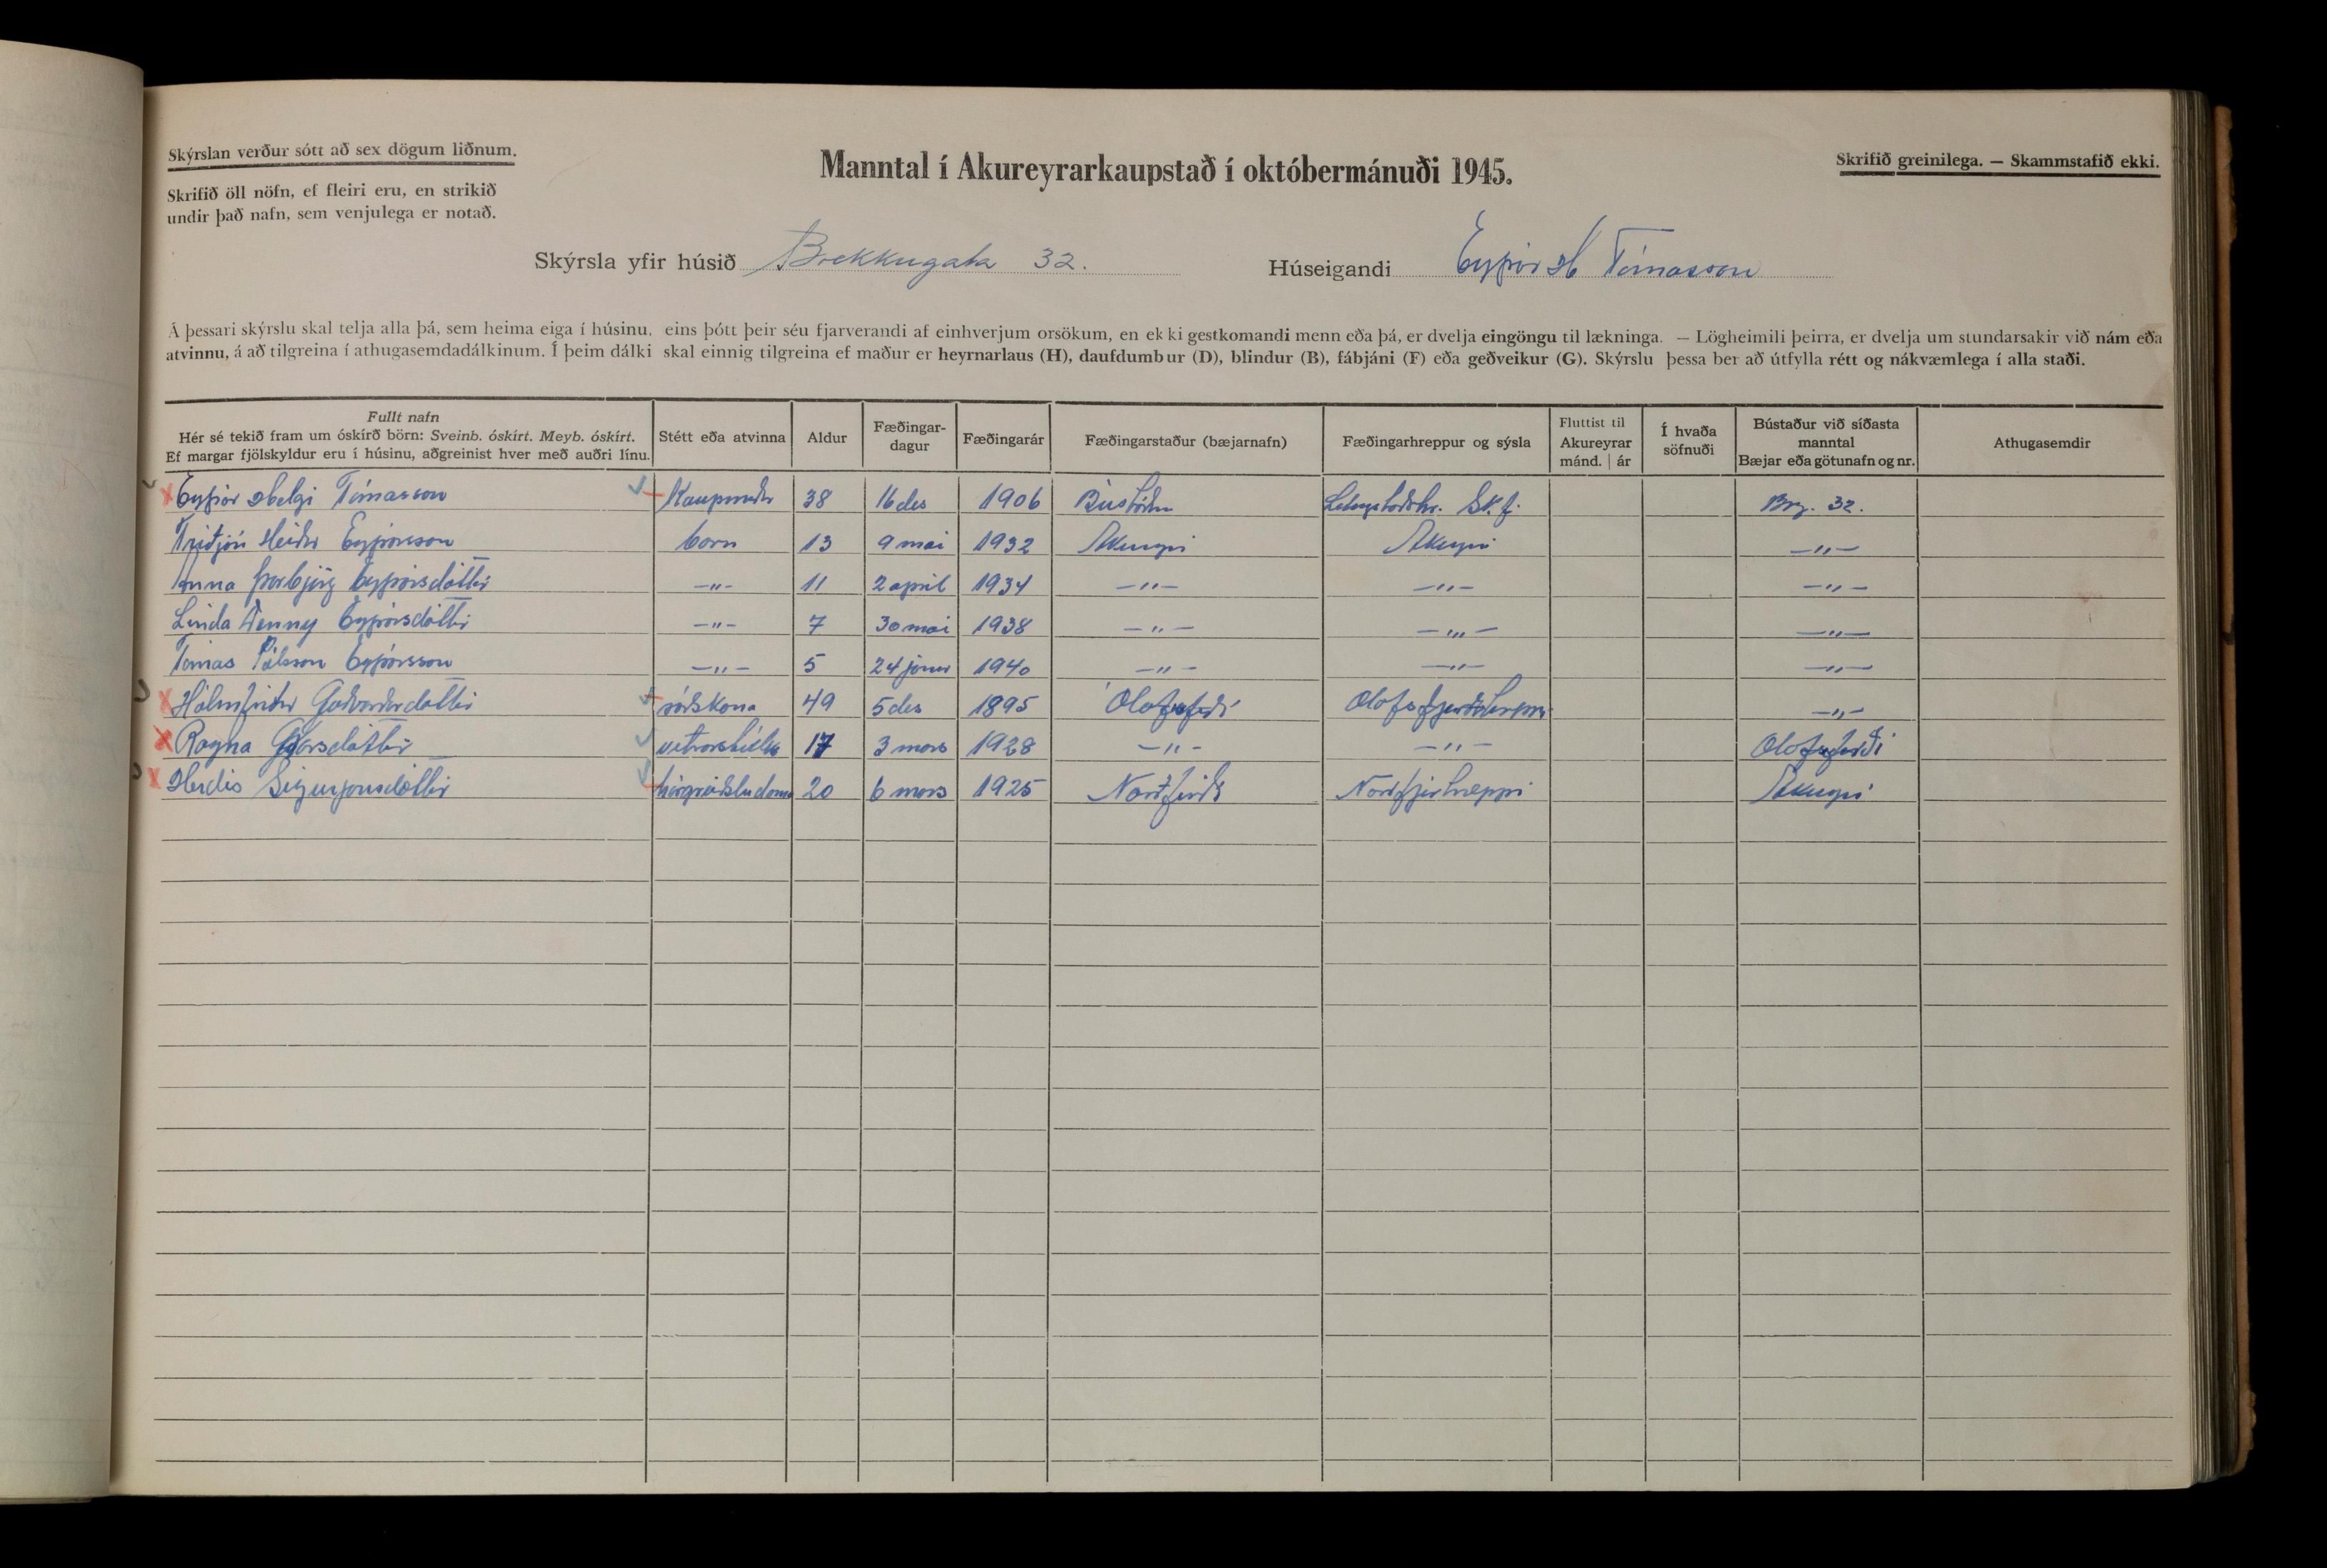 Skýrslan verður sótt að sex dögum liðnum.
Skrifið öll nöfn, ef fleiri eru, en strikið
undir það nafn, sem venjulega er notað.
Manntal í Akureyrarkaupstað í októbermánuði 1945.
Skrifið greinilega. — Skammstafið ekki.
Skýrsla yfir húsið Brekkugata 32.
Húseigandi Eyþór H Tómasson
Á þessari skýrslu skal telja alla þá, sem heima eiga í húsinu, eins þótt þeir séu fjarverandi af einhverjum orsökum, en ekki gestkomandi menn eða þá, er dvelja eingöngu til lækninga. — Lögheimili þeirra, er dvelja um stundarsakir við nám eða
atvinnu, á að tilgreina í athugasemdadálkinum. Í þeim dálki skal einnig tilgreina ef maður er heyrnarlaus (H), daufdumbur (D), blindur (B), fábjáni (F) eða geðveikur (G). Skýrslu þessa ber að útfylla rétt og nákvæmlega í alla staði.
Fullt nafn
Hér sé tekið fram um óskírð börn: Sveinb. óskírt. Meyb. óskírt.
Ef margar fjölskyldur eru í húsinu, aðgreinist hver með auðri línu.
Stétt eða atvinna
Aldur
Fæðingar-
dagur
Fæðingarár
Fæðingarstaður (bæjarnafn)
Fæðingarhreppur og sýsla
Fluttist til
Akureyrar
mánd. | ár
Í hvaða
söfnuði
Bústaður við síðasta
manntal
Bæjar eða götunafn og nr.
Athugasemdir
Eyþór Helgi Tómasson Kaupmaður 38 16 des 1906 Bústöðum Sk.f. Brg. 32.
Friðjón Heiðar Eyþórsson born 13 9 mai 1932 Akureyri Akureyri —"—
Anna Þorbjörg Eyþórsdóttir —"— 11 2 april 1934 —"— —"— —"—
Linda Fenny Eyþórsdóttir —"— 7 30 mai 1938 —"— —"— —"—
Tómas Pálsson Eyþórsson —"— 5 24 januar 1940 —"— —"— —"—
Hólmfríður Guðvarðardóttir ráðskona 49 5 des 1895 Olofsfirði —"—
Ragna 17 3 mars 1928 —"— —"— Olofsfirði
Herdís Sigurjónsdóttir hárgreiðsludama 20 6 mars 1925 Norðfirði Akureyri